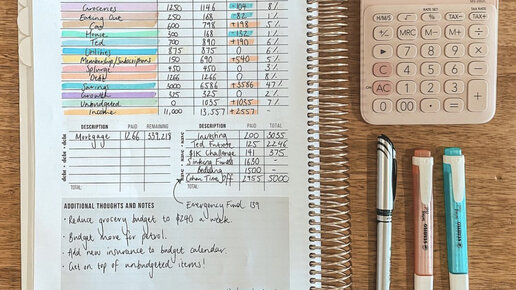 Groceries 1250 1146 -104 8%
Eating Out 250 168 82 1%
Car 600 798 +198 5%
House 300 168 -132 1%
Ted 700 890 +190 6%
Utilities 875 875 0 6%
Membership/Subscriptions 150 690 +540 5%
Splurge 450 450 0 3%
Debt 1266 1266 0 8%
Savings 3000 6586 +3586 47%
Growth 325 325 0 2%
Unbudgeted 0 1035 +1035 7%
Income 11,000 13,557 +2557
DESCRIPTION PAID REMAINING
Mortgage 1266
TOTAL:
DESCRIPTION PAID TOTAL
Investing 200 3055
Ted Future 125 2246
$1K Challenge 141 375
Sinking Funds 1630
Bedding 1500 -
Time Off 2955 5000
TOTAL:
Emergency Fund 139
ADDITIONAL THOUGHTS AND NOTES
· Reduce grocery budget to $240 a week.
· Budget more for petrol.
· Add new insurance to budget calendar.
· List on top of unbudgeted items!
TAX RATE
M/EX % √ TAX- TAX+
÷ MRC M- M+ ÷
% 7 8 9 ×
C 4 5 6 -
AC 1 2 3 +
0 00 . =
STABILO
STABILO